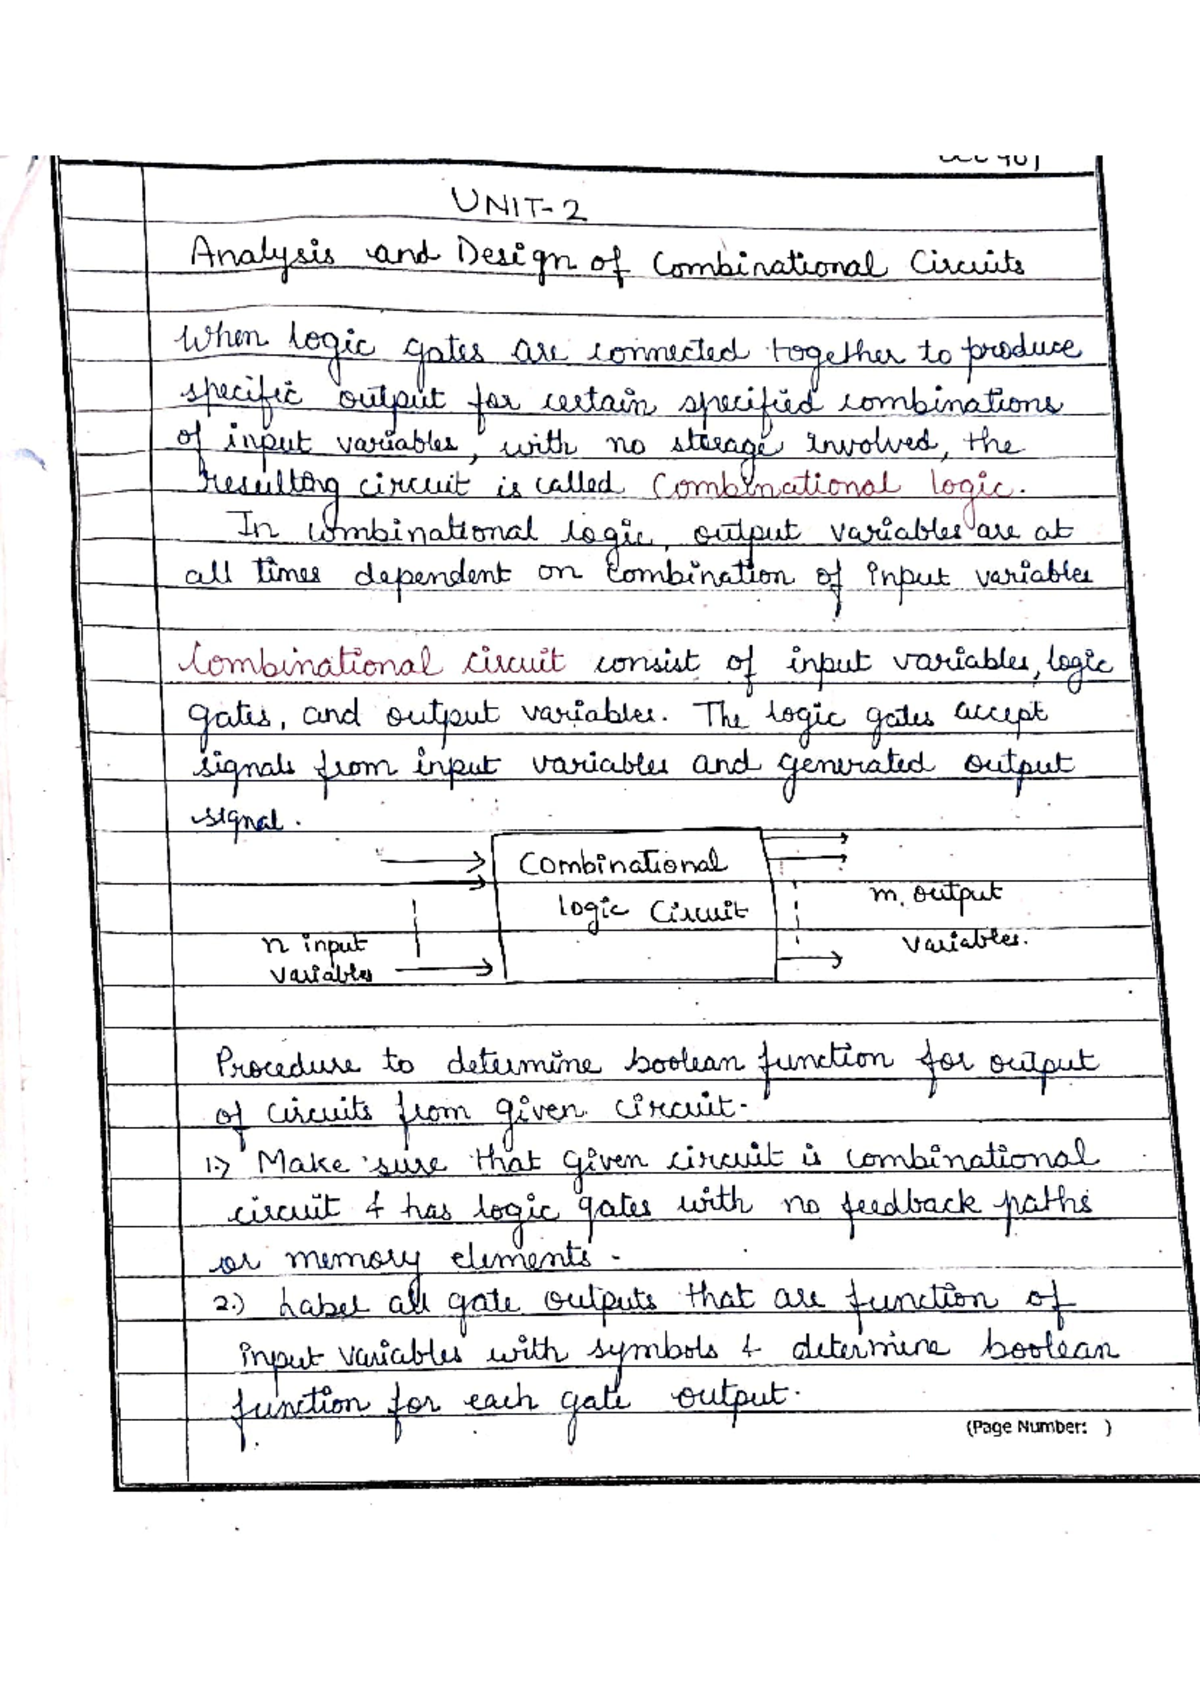 UNIT-2
Analysis and Design of Combinational Circuits
When logic gates are connected together to produce
specific output for certain specified combinations
of input variables, with no storage involved, the
resulting circuit is called Combinational logic.
In combinational logic, output variables are at
all times dependent on combination of input variables
Combinational circuit consist of input variables, logic
gates, and output variables. The logic gates accept
signals from input variables and generated output
signal.
Combinational
logic Circuit
n input
variables
m. output
variables.
Procedure to determine boolean function for output
of circuits from given circuit-
1.) Make sure that given circuit is combinational
circuit & has logic gates with no feedback paths
or memory elements.
2.) Label all gate outputs that are function of
input variables with symbols & determine boolean
function for each gate output.
(Page Number: )